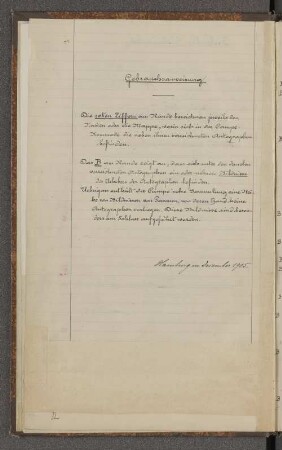 Gebrauchsanweisung
Die roten Ziffern am Rande bezeichnen jeweils den
Kasten oder die Mappe, worin sich in der Campe-
Kommode die neben ihnen verzeichneten Autographen
befinden.
Das B am Rande zeigt an, dass sich unter den daneben
verzeichneten Autographen ein oder mehrere Bildnisse
des Urhebers der Autographen befinden.
Uebrigens enthält die Campe'sche Sammlung eine Rei-
he von Bildnissen von Personen, von deren Hand keine
Autographen vorliegen. Diese Bildnisse sind beson-
ders am Schluss aufgeführt worden.
Hamburg im December 1905.